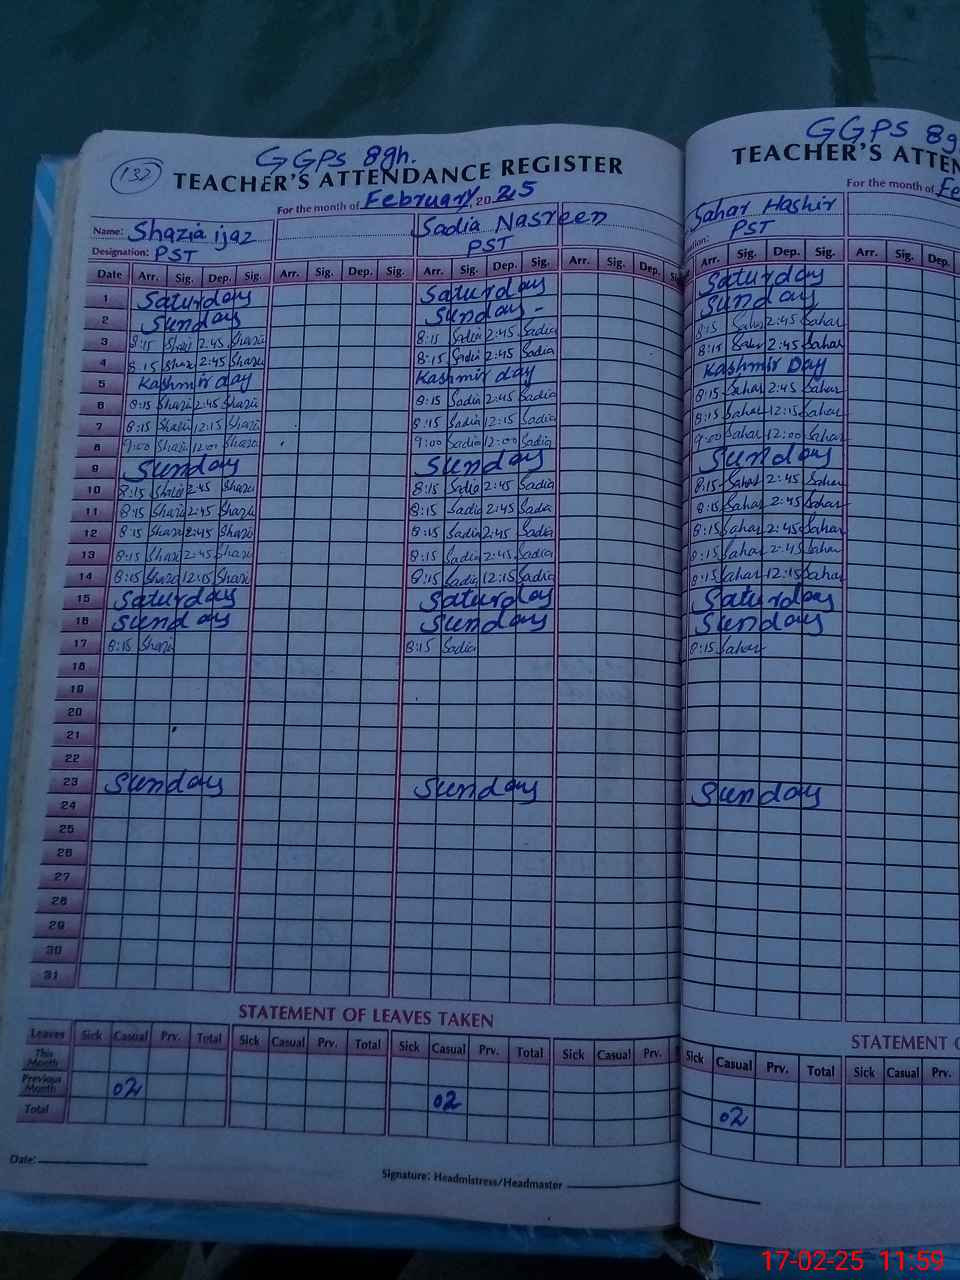 GGPS 8gh.
132
TEACHER'S ATTENDANCE REGISTER
For the month of February 2025
Name: Shazia ijaz Sadia Nasreen
Designation: PST PST
Date Arr. Sig. Dep. Sig. Arr. Sig. Dep. Sig. Arr. Sig. Dep. Sig. Arr. Sig. Dep. Sig.
1 Saturday Saturday
2 Sunday Sunday -
3 8:15 Shazi 2:45 Shazia 8:15 Sadia 2:45 Sadia
4 8:15 Shazi 2:45 Shazia 8:15 Sadia 2:45 Sadia
5 Kashmir day Kashmir day
6 8:15 Shazia 2:45 Shazia 8:15 Sadia 2:45 Sadia
7 8:15 Shazia 12:15 Shazia 8:15 Sadia 12:15 Sadia
8 9:00 Shazia 12:00 Shazia 9:00 Sadia 12:00 Sadia
9 Sunday Sunday
10 8:15 Shazia 2:45 Shazia 8:15 Sadia 2:45 Sadia
11 8:15 Shazia 2:45 Shazia 8:15 Sadia 2:45 Sadia
12 8:15 Shazia 2:45 Shazia 8:15 Sadia 2:45 Sadia
13 8:15 Shazi 2:45 Shazia 8:15 Sadia 2:45 Sadia
14 8:15 Shazia 12:15 Shazi 8:15 Sadia 12:15 Sadia
15 Saturday Saturday
16 Sunday Sunday
17 8:15 Shazi 8:15 Sadia
18
19
20
21
22
23 Sunday Sunday
24
25
26
27
28
29
30
31
STATEMENT OF LEAVES TAKEN
Leaves Sick Casual Prv. Total Sick Casual Prv. Total Sick Casual Prv. Total Sick Casual Prv.
This Month
Previous Month 02 02
Total
Date:
Signature: Headmistress/Headmaster
GGPS 8g
TEACHER'S ATTEN
For the month of Fe
Sahar Hashir
PST
Arr. Sig. Dep. Sig. Arr. Sig. Dep.
Saturday
Sunday
8:15 Sahar 2:45 Sahar
8:15 Sahar 2:45 Sahar
Kashmir Day
8:15 Sahar 2:45 Sahar
8:15 Sahar 12:15 Sahar
9:00 Sahar 12:00 Sahar
Sunday
8:15 Sahar 2:45 Sahar
8:15 Sahar 2:45 Sahar
8:15 Sahar 2:45 Sahar
8:15 Sahar 2:45 Sahar
8:15 Sahar 12:15 Sahar
Saturday
Sunday
8:15 Sahar
Sunday
STATEMENT O
Sick Casual Prv. Total Sick Casual Prv.
02
17-02-25 11:59